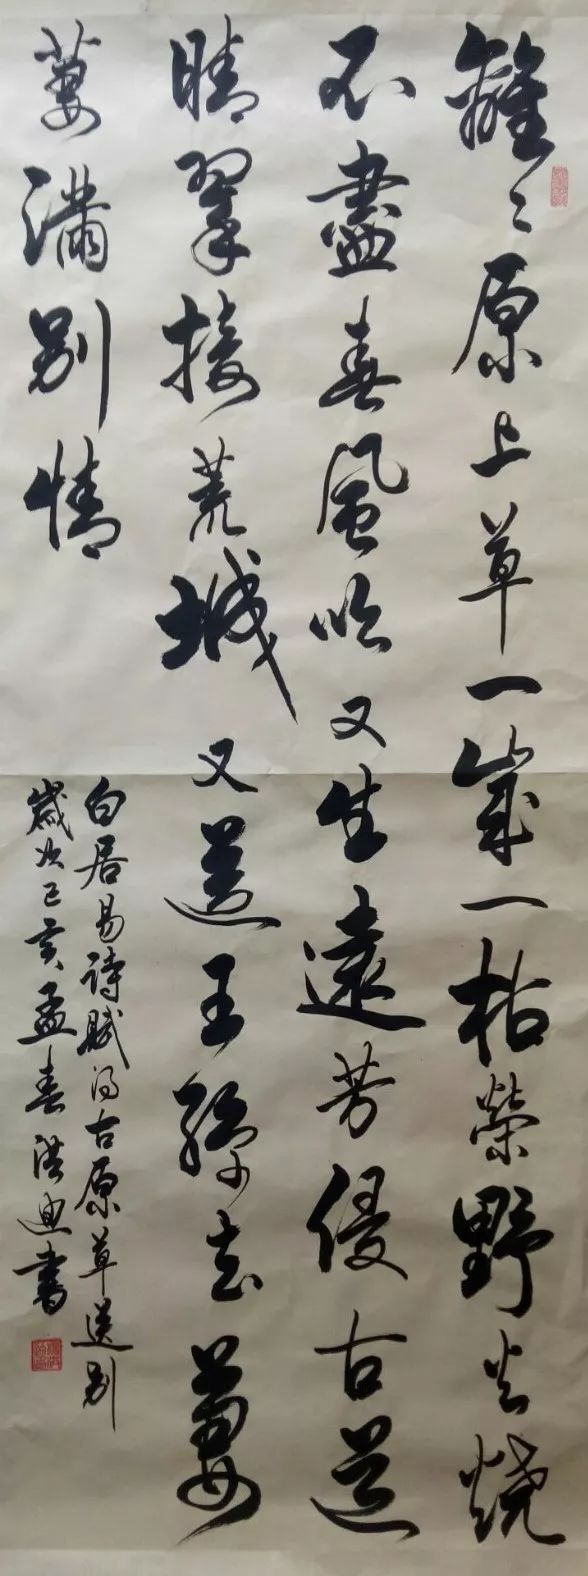 離〻原上草一歲一枯榮野火燒
不盡春風吹又生遠芳侵古道
晴翠接荒城又送王孫去萋
萋滿別情
白居易詩賦得古原草送别
歲次己亥孟春洪迪書